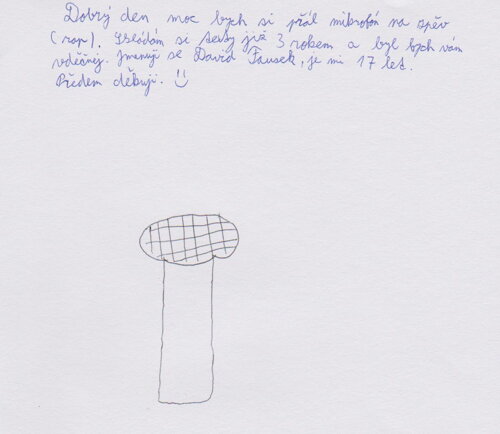 Dobrý den moc bych si přál mikrofón na zpěv
(rap). Skládám si texty již 3 rokem a byl bych vám
vděčnej. Jmenuji se David Fausek, je mi 17 let.
Předem děkuji. :)